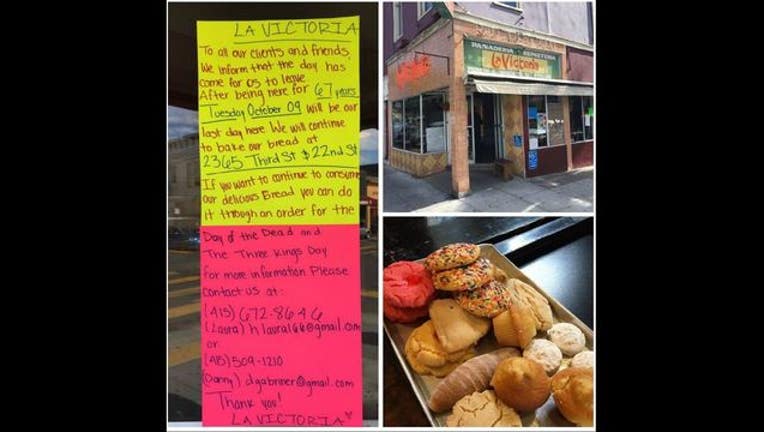 LA VICTORIA
To all our clients and friends
We inform that the day has
come for us to leave
After being here for 67 years
Tuesday October 09 will be our
last day here We will continue
to bake our bread at
2365 Third St $ 22nd St
If you want to continue to consume
our delicious Bread you can do
it through an order for the
Day of the Dead and
The Three Kings Day
for more information Please
contact us at:
(415) 672-8646
(Laura) hlaura166@gmail.com
or
(415) 509-1210
(Danny) dgabriner@gmail.com
Thank you!
LA VICTORIA
PANADERIA REPOSTERIA
La Victoria